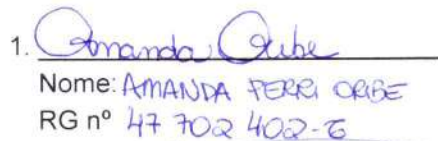 1. Amanda Oribe
Nome: AMANDA FERRI ORIBE
RG nº 47 702 402-6